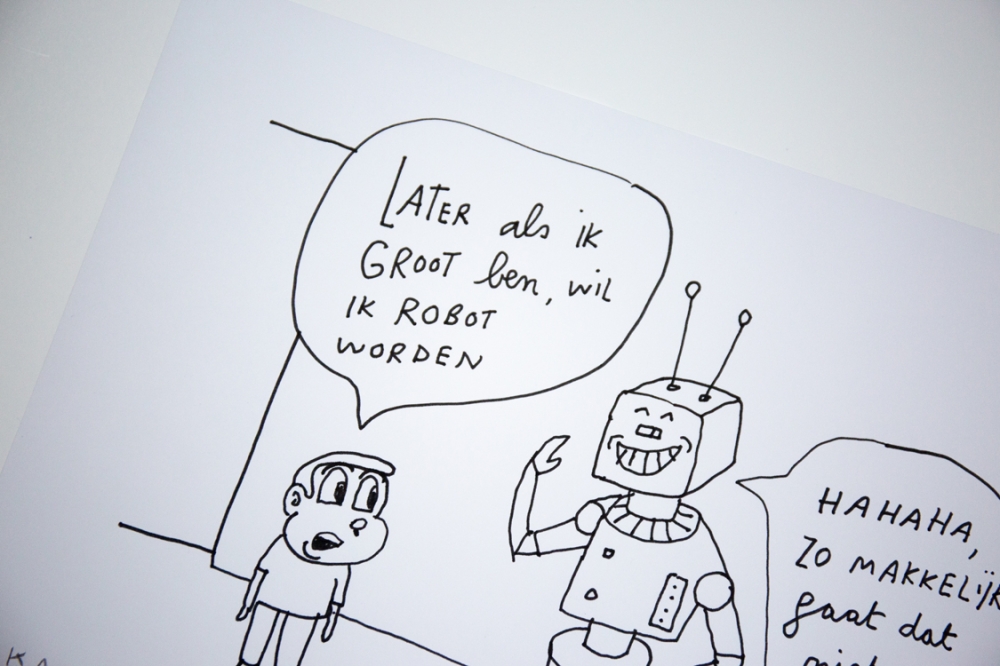 LATER als ik
GROOT ben, wil
IK ROBOT
WORDEN
HAHAHA,
ZO MAKKELIJK
gaat dat